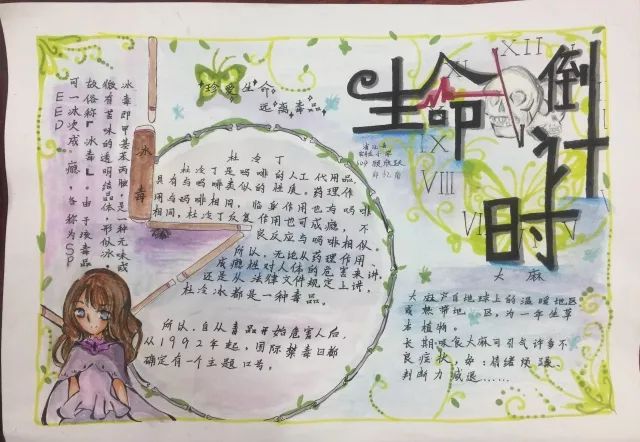 生命倒计时
珍爱生命
远离毒品
冰毒
冰毒即甲基苯丙胺,是一种无味或
微有苦味的透明结晶体,形似冰,
故俗称“冰毒”。由于该毒品
可一次成瘾,
杜冷丁
杜冷丁是吗啡的人工代用品,
具有与吗啡类似的性质。药理作
用与吗啡相同,临床作用也与吗啡
相同,杜冷丁反复作用也可成瘾,不
良反应与吗啡相似。
所以,无论从药理作用、
成瘾性对人体的危害来讲,
还是从法律文件规定上讲,
杜冷冰都是一种毒品。
所以,自从毒品开始危害人后,
从1992年起,国际禁毒日都
确定有一个主题口号。
XII
IX
VIII
VII
大麻
大麻产自地球上的温暖地区
或热带地区,为一年生草
本植物。
长期吸食大麻可引气许多不
良症状,如:情绪烦躁、
判断力减退……